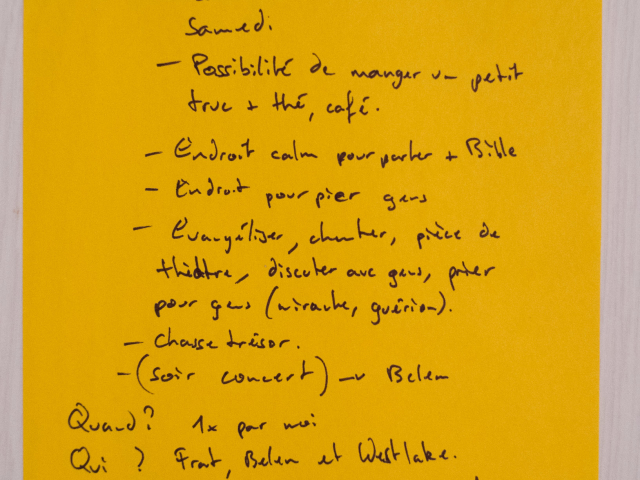 Samedi
— Possibilité de manger un petit
truc + thé, café.
— Endroit calm pour parler + Bible
— Endroit pour pier gens
— Evangéliser, chanter, pièce de
théâtre, discuter avc gens, prier
pour gens (miracle, guérion).
— Chasse trésor.
- (soir concert) → Belem
Quand? 1x par moi
Qui ? Frat, Belem et Westlake.